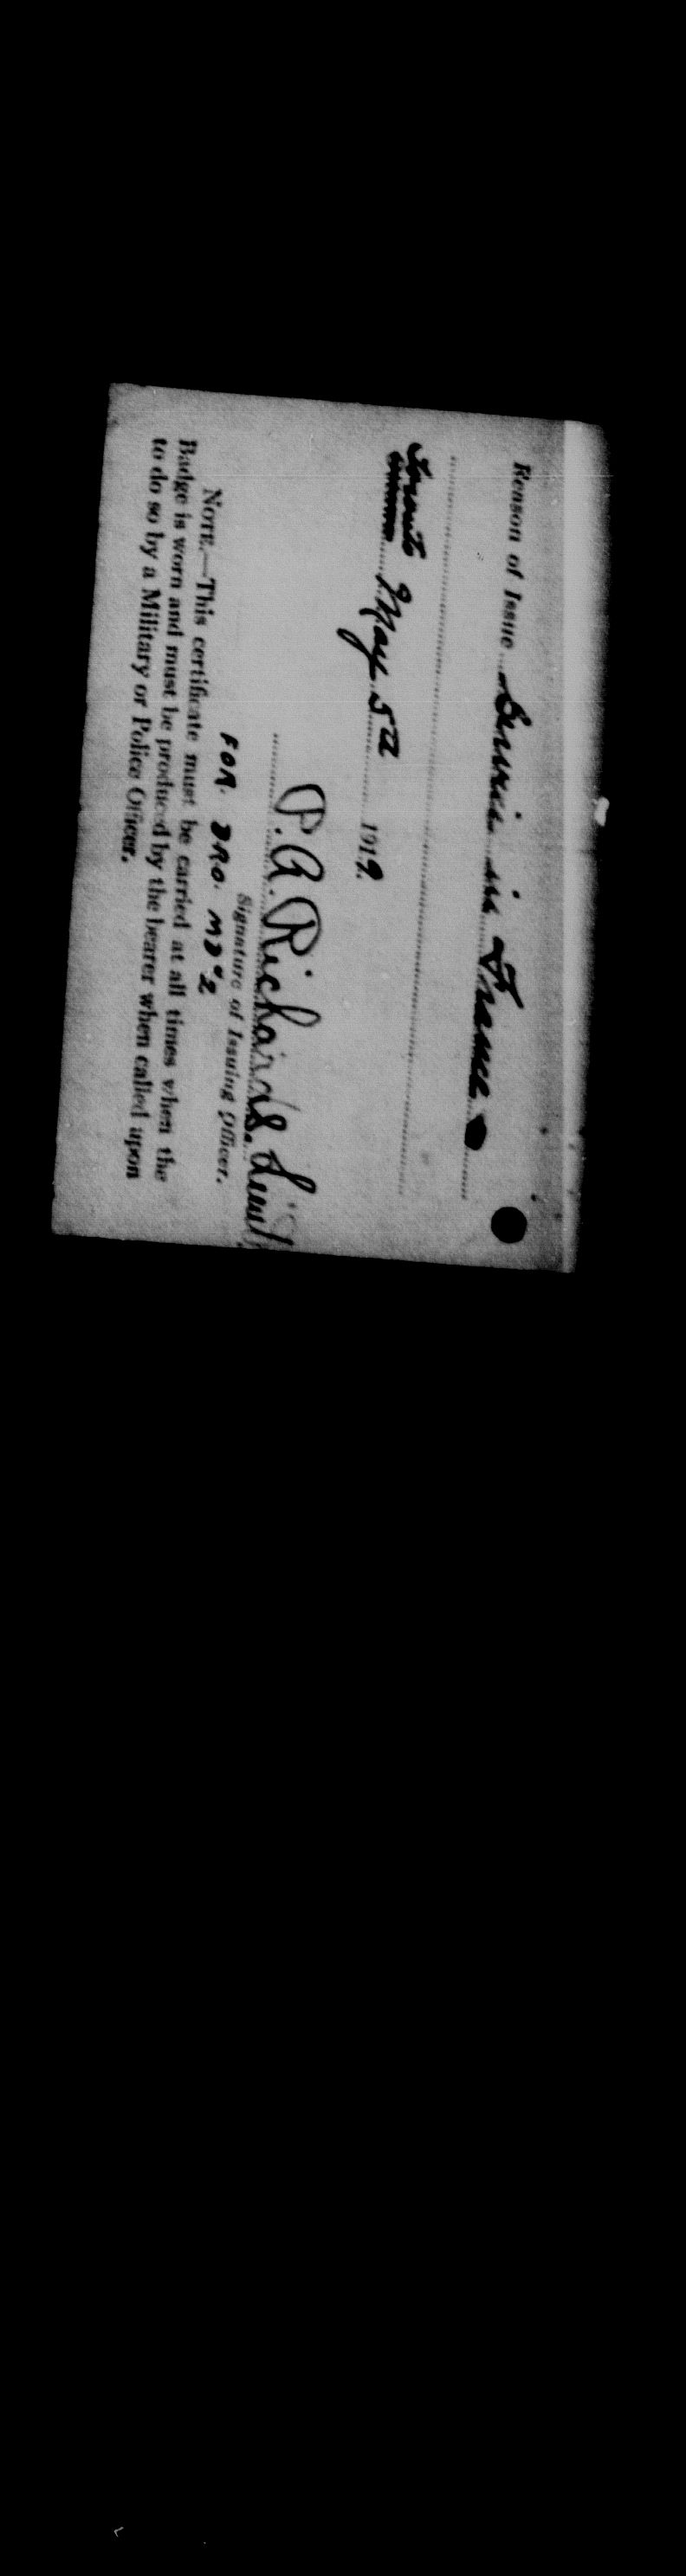 Reason of Issue Service in France
Toronto May 5th 1919.
P. A. Richards Lieut
Signature of Issuing Officer.
FOR. DRO. MD "2
NOTE.—This certificate must be carried at all times when the
Badge is worn and must be produced by the bearer when called upon
to do so by a Military or Police Officer.